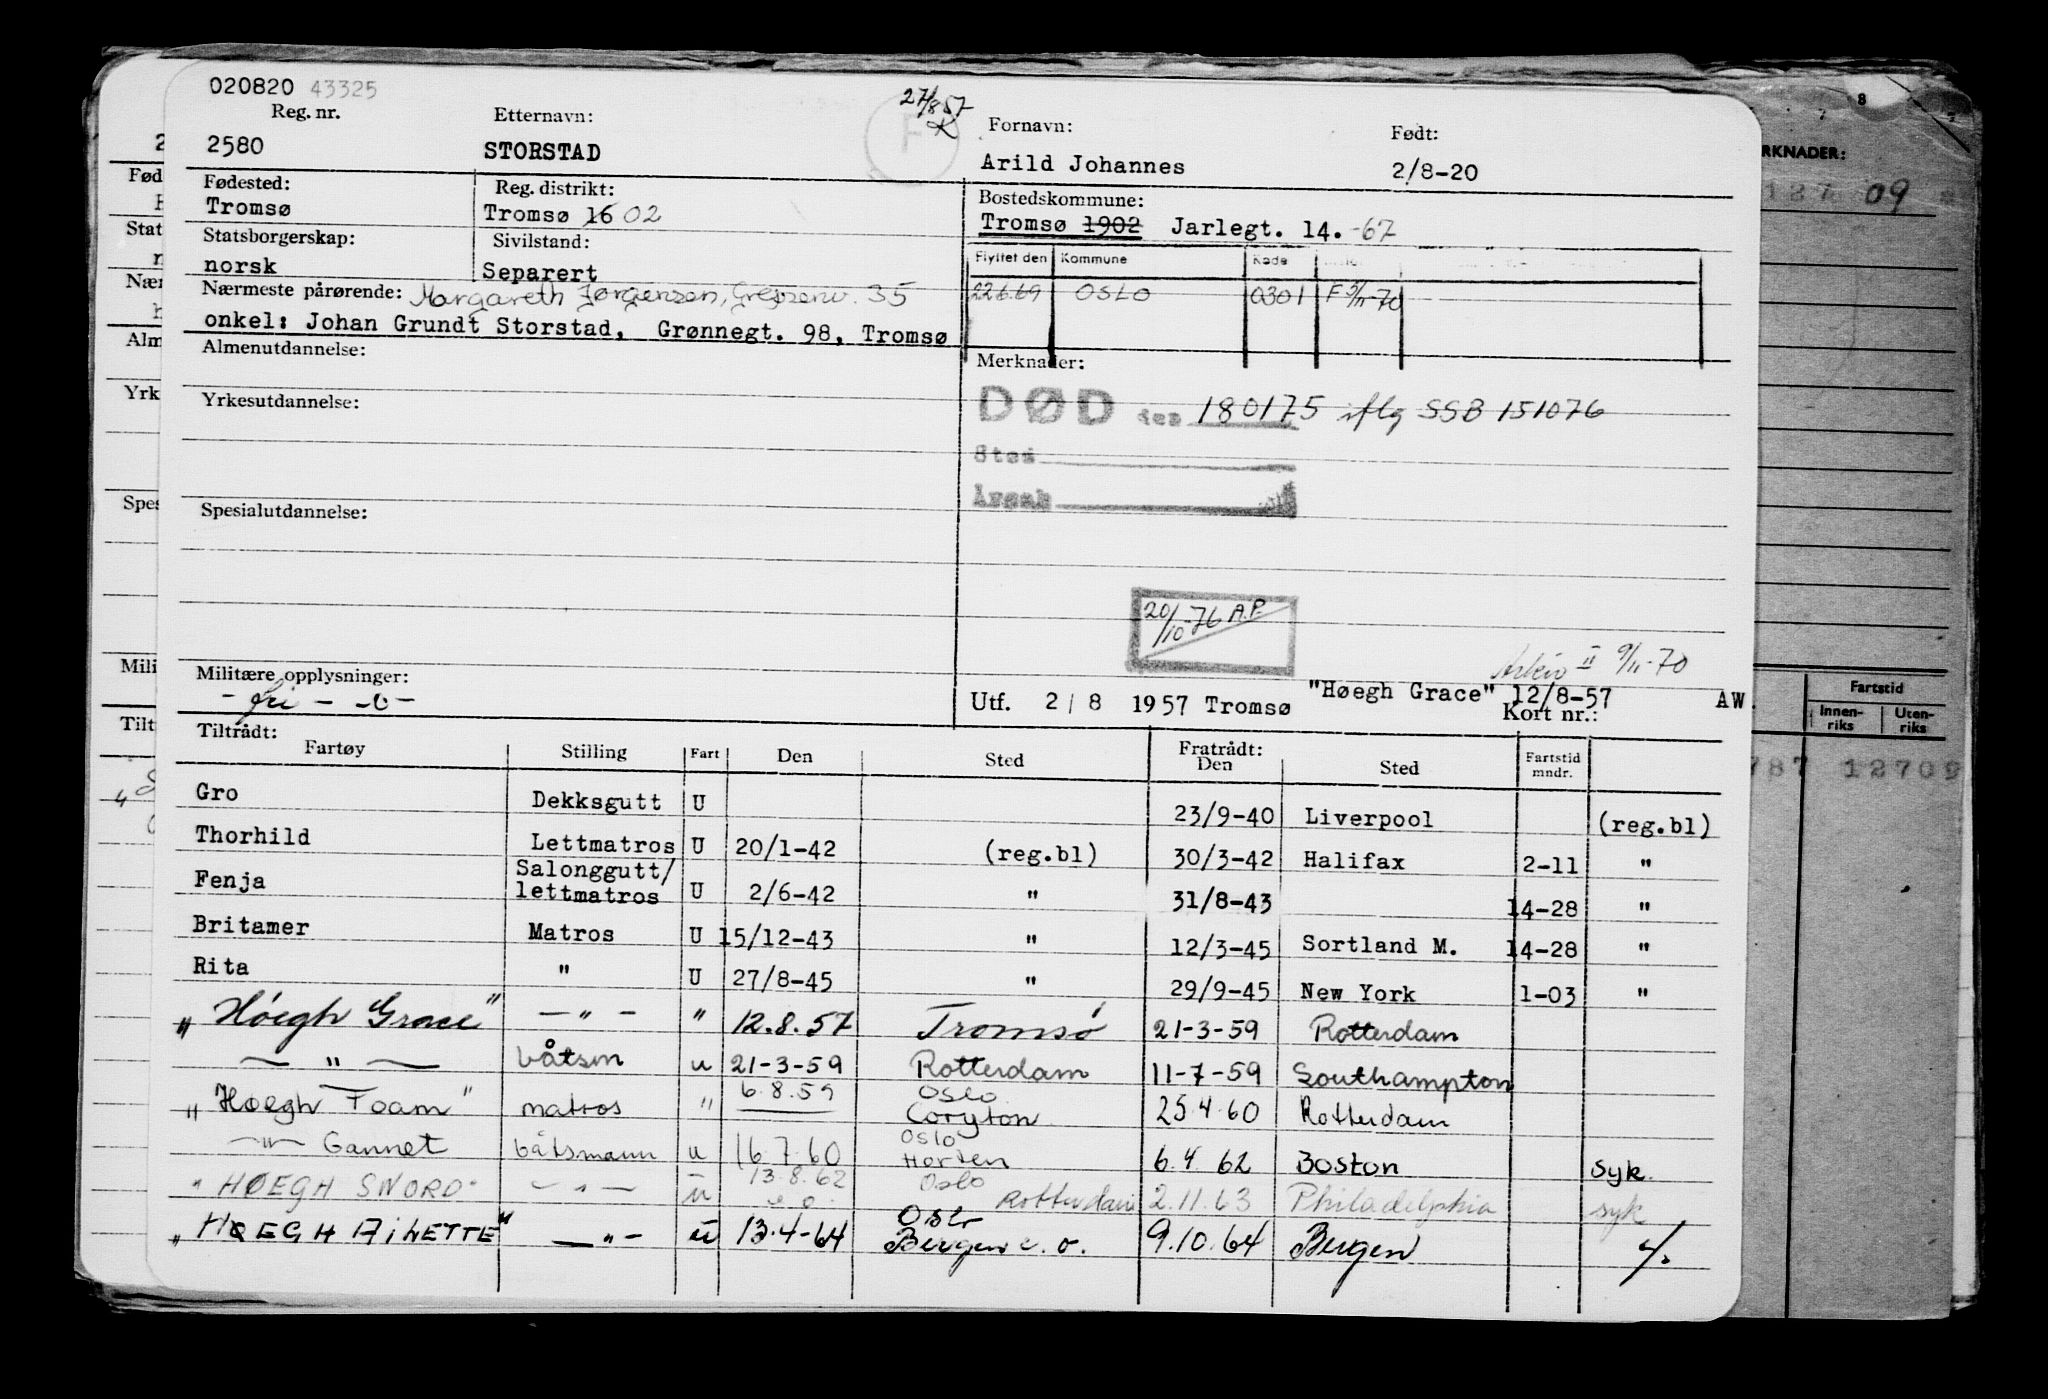 020820 43325
27/8 57
Reg. nr. Etternavn: Fornavn: Født:
2580 STORSTAD F Arild Johannes 2/8-20
Fødested: Reg. distrikt: Bostedskommune:
Tromsø Tromsø 16 02 Tromsø 1902 Jarlegt. 14. -67
Statsborgerskap: Sivilstand: Flyttet den Kommune Kode
norsk Separert 22.6.69 OSLO 0301 F 5/11-70
Nærmeste pårørende: Margareth Jørgensen, 35
onkel: Johan Grundt Storstad, Grønnegt. 98, Tromsø
Almenutdannelse: Merknader:
DØD den 180175 iflg SSB 151076
Yrkesutdannelse:
Sted
Årsak
Spesialutdannelse:
20/10-76 A.P.
Arkiv II 9/11-70
Militære opplysninger: Utf. 2/8 1957 Tromsø "Høegh Grace" 12/8-57 AW.
- fri - -0- Kort nr.:
Tiltrådt: Fratrådt:
Fartøy Stilling Fart Den Sted Den Sted Fartstid mndr.
Gro Dekksgutt U 23/9-40 Liverpool (reg.bl)
Thorhild Lettmatros U 20/1-42 (reg.bl) 30/3-42 Halifax 2-11 "
Fenja Salonggutt/ lettmatros U 2/6-42 " 31/8-43 14-28 "
Britamer Matros U 15/12-43 " 12/3-45 Sortland M. 14-28 "
Rita " U 27/8-45 " 29/9-45 New York 1-03 "
"Høegh Grace" - " - " 12.8.57 Tromsø 21-3-59 Rotterdam
- " - båtsm u 21-3-59 Rotterdam 11-7-59 Southampton
"Høegh Foam" matros " 6.8.59 Oslo Coryton 25.4.60 Rotterdam
- " - Gannet båtsmann u 16.7.60 Oslo Horten 6.4.62 Boston syk.
"HØEGH SWORD" - " - u 13.8.62 e.o. Oslo Rotterdam 2.11.63 Philadelphia syk
"HØEGH AILETTE" - " - u 13.4-64 Oslo Bergen e.o. 9.10.64 Bergen
RKNADER:
09
8
Fartstid
Innen-riks Uten-riks
787 12709